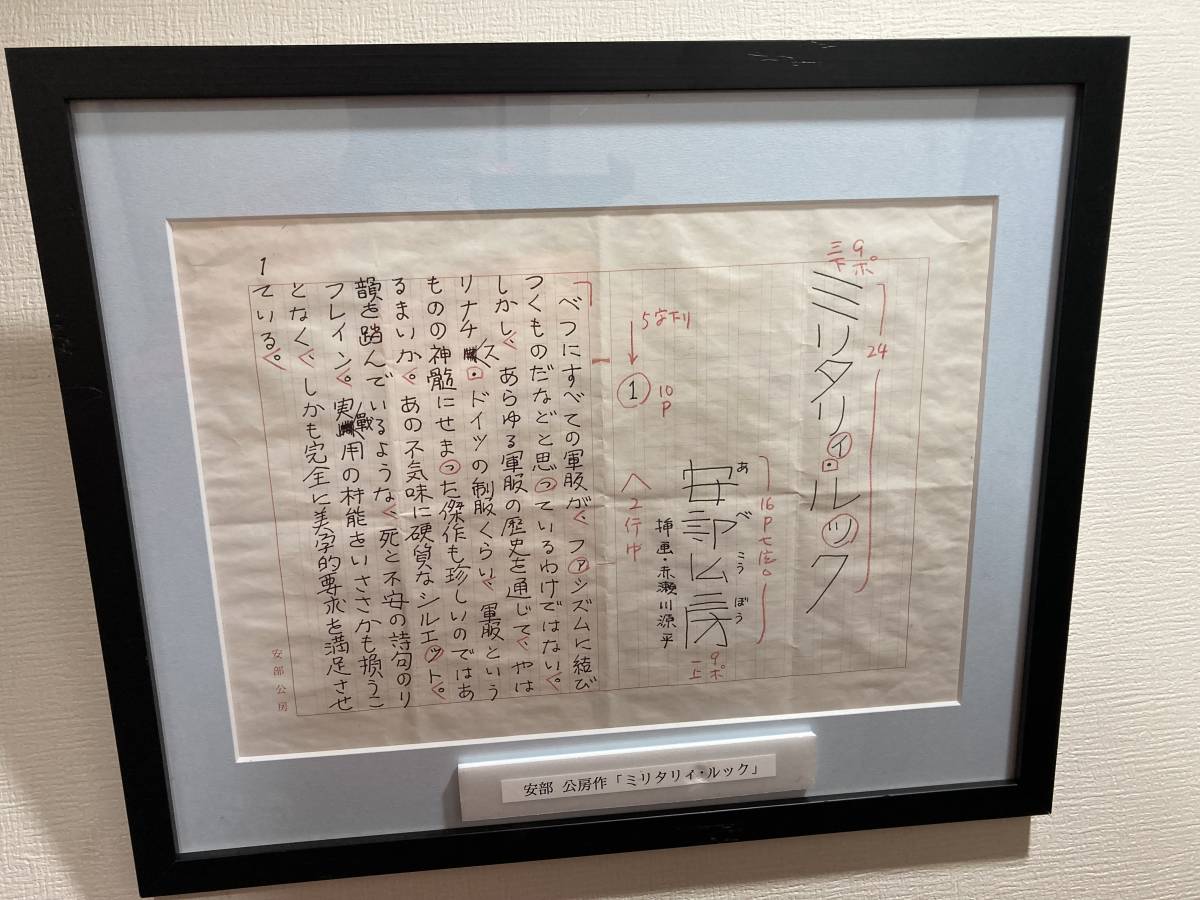 9ポ
三下
ミリタリィ・ルック
24
16P
あべこうぼう
安部公房
9ポ
一上
挿画・赤瀬川源平
2行中
5字下リ
1
10P
べつにすべての軍服が、ファシズムに結び
つくものだなどと思っているわけではない。
しかし、あらゆる軍服の歴史を通じて、やは
りナチス・ドイツの制服くらい、軍服という
ものの神髄にせまった傑作も珍しいのではあ
るまいか。あの不気味に硬質なシルエット。
韻を踏んでいるような、死と不安の詩句のリ
フレイン。実戰用の機能をいささかも損うこ
となく、しかも完全に美学的要求を満足させ
ている。
1
安部公房
安部 公房作「ミリタリィ・ルック」